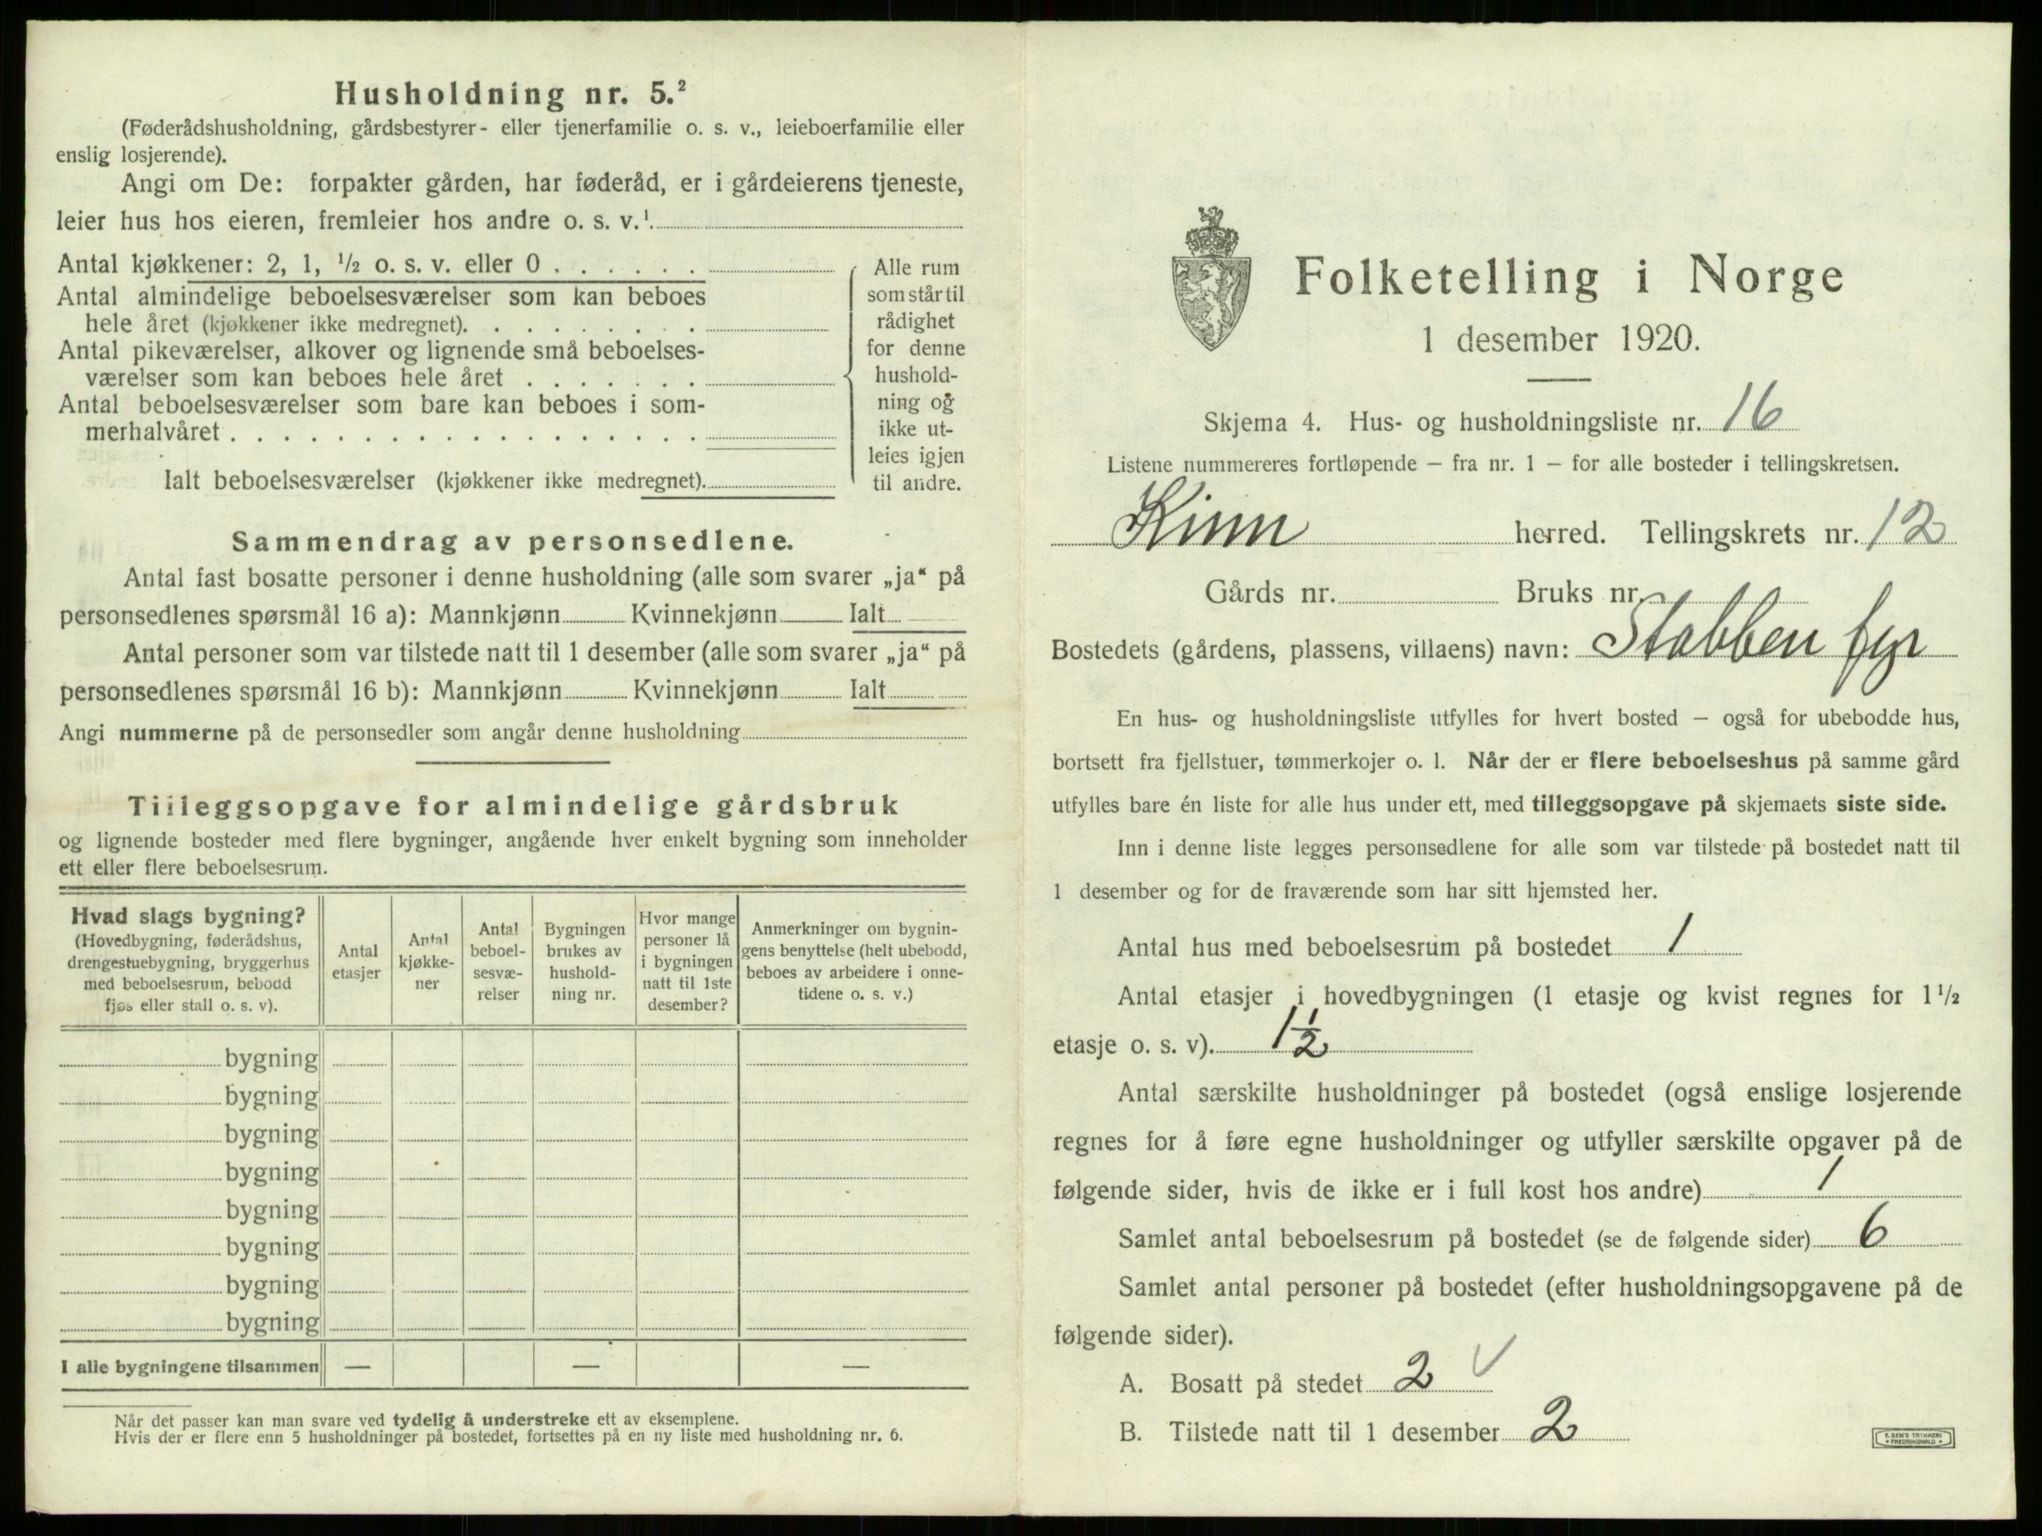 Husholdning nr. 5.²
(Føderådshusholdning, gårdsbestyrer- eller tjenerfamilie o. s. v., leieboerfamilie eller
enslig losjerende).
Angi om De: forpakter gården, har føderåd, er i gårdeierens tjeneste,
leier hus hos eieren, fremleier hos andre o. s. v.¹
Antal kjøkkener: 2, 1, ½ o. s. v. eller 0 . . . . . .
Antal almindelige beboelsesværelser som kan beboes
hele året (kjøkkener ikke medregnet). . . . . . . . .
Antal pikeværelser, alkover og lignende små beboelses-
værelser som kan beboes hele året . . . . . . .
Antal beboelsesværelser som bare kan beboes i som-
merhalvåret . . . . . . . . . . . . . . . . . .
Ialt beboelsesværelser (kjøkkener ikke medregnet).
Alle rum
som står til
rådighet
for denne
hushold-
ning og
ikke ut-
leies igjen
til andre.
Sammendrag av personsedlene.
Antal fast bosatte personer i denne husholdning (alle som svarer „ja“ på
personsedlenes spørsmål 16 a): Mannkjønn Kvinnekjønn Ialt
Antal personer som var tilstede natt til 1 desember (alle som svarer „ja“ på
personsedlenes spørsmål 16 b): Mannkjønn Kvinnekjønn Ialt
Angi nummerne på de personsedler som angår denne husholdning
Tilleggsopgave for almindelige gårdsbruk
og lignende bosteder med flere bygninger, angående hver enkelt bygning som inneholder
ett eller flere beboelsesrum.
Hvad slags bygning?
(Hovedbygning, føderådshus,
drengestuebygning, bryggerhus
med beboelsesrum, bebodd
fjøs eller stall o. s. v).
Antal
etasjer
Antal
kjøkke-
ner
Antal
beboel-
sesvæ-
relser
Bygningen
brukes av
hushold-
ning nr.
Hvor mange
personer lå
i bygningen
natt til 1ste
desember?
Anmerkninger om bygnin-
gens benyttelse (helt ubebodd,
beboes av arbeidere i onne-
tidene o. s. v.)
bygning
bygning
bygning
bygning
bygning
bygning
bygning
bygning
I alle bygningene tilsammen — — —
Når det passer kan man svare ved tydelig å understreke ett av eksemplene.
Hvis der er flere enn 5 husholdninger på bostedet, fortsettes på en ny liste med husholdning nr. 6.
Folketelling i Norge
1 desember 1920.
Skjema 4. Hus- og husholdningsliste nr. 16
Listene nummereres fortløpende — fra nr. 1 — for alle bosteder i tellingskretsen.
Kinn herred. Tellingskrets nr. 12
Gårds nr. Bruks nr.
Bostedets (gårdens, plassens, villaens) navn: Stabben fyr
En hus- og husholdningsliste utfylles for hvert bosted — også for ubebodde hus,
bortsett fra fjellstuer, tømmerkojer o. l. Når der er flere beboelseshus på samme gård
utfylles bare én liste for alle hus under ett, med tilleggsopgave på skjemaets siste side.
Inn i denne liste legges personsedlene for alle som var tilstede på bostedet natt til
1 desember og for de fraværende som har sitt hjemsted her.
Antal hus med beboelsesrum på bostedet 1
Antal etasjer i hovedbygningen (1 etasje og kvist regnes for 1½
etasje o. s. v). 1½
Antal særskilte husholdninger på bostedet (også enslige losjerende
regnes for å føre egne husholdninger og utfyller særskilte opgaver på de
følgende sider, hvis de ikke er i full kost hos andre) 1
Samlet antal beboelsesrum på bostedet (se de følgende sider) 6
Samlet antal personer på bostedet (efter husholdningsopgavene på de
følgende sider).
A. Bosatt på stedet 2 ✓
B. Tilstede natt til 1 desember 2
E. SEM'S TRYKKERI
• FREDRIKSHALD •